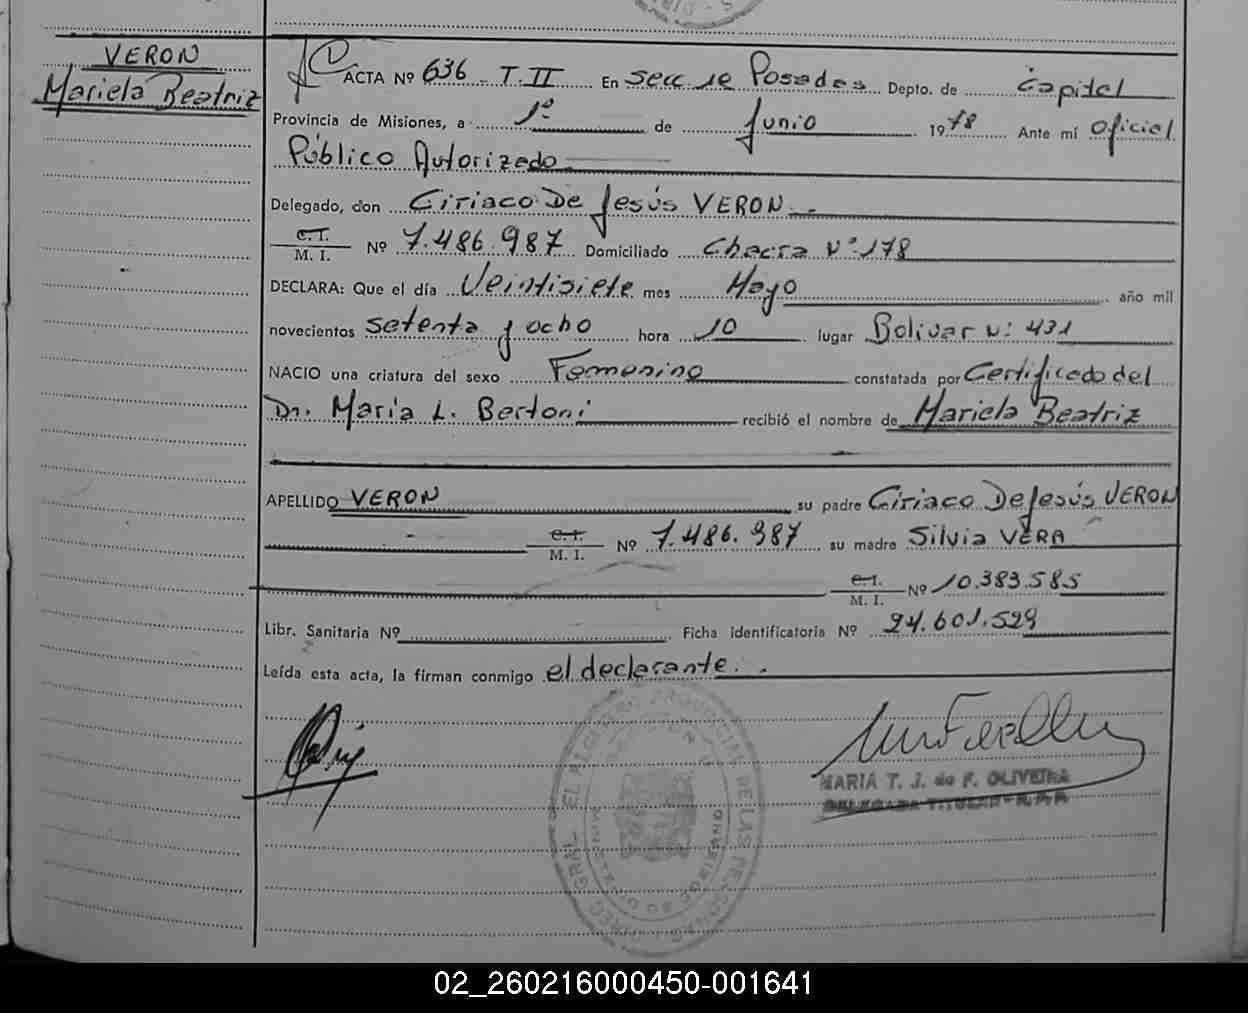 VERON
Mariela Beatriz
ACTA Nº 636 - T. II En secc 1e Posadas Depto. de Capital
Provincia de Misiones, a 1º de Junio 1978 Ante mí Oficial
Público Autorizado
Delegado, don Ciriaco De Jesús VERON -
C. I.
M. I. Nº 7.486.987 Domiciliado Chacra Nº 178
DECLARA: Que el día Veintisiete mes Mayo año mil
novecientos setenta y ocho hora 10 lugar Bolivar Nº 431
NACIO una criatura del sexo Femenino constatada por Certificado del
Dr. María L. Bertoni recibió el nombre de Mariela Beatriz
APELLIDO VERON su padre Ciriaco De Jesús VERON
C. I.
M. I. Nº 7.486.987 su madre Silvia VERA
C. I.
M. I. Nº 10.383.585
Libr. Sanitaria Nº Ficha identificatoria Nº 24.601.529
Leída esta acta, la firman conmigo el declarante. .
MARIA T. J. de F. OLIVEIRA
DELEGADA TITULAR
02_260216000450-001641